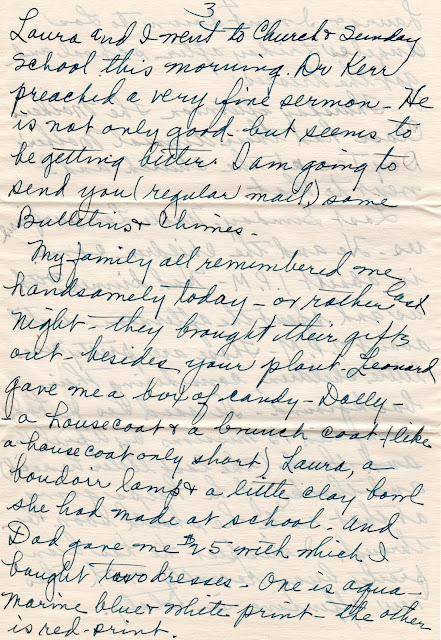 3
Laura and I went to Church & Sunday
School this morning. Dr Kerr
preached a very fine sermon - He
is not only good - but seems to
be getting better. I am going to
send you (regular mail) some
Bulletins & Chimes -
My family all remembered me
handsomely today - or rather Last
Night - they brought their gifts
out - besides your plant - Leonard
gave me a box of candy - Dolly -
a housecoat & a brunch coat (like
a housecoat only short) Laura, a
boudoir lamp & a little clay bowl
she had made at school - And
Dad gave me $25 with which I
bought two dresses - One is aqua-
marine blue & white print - the other
is red - print.